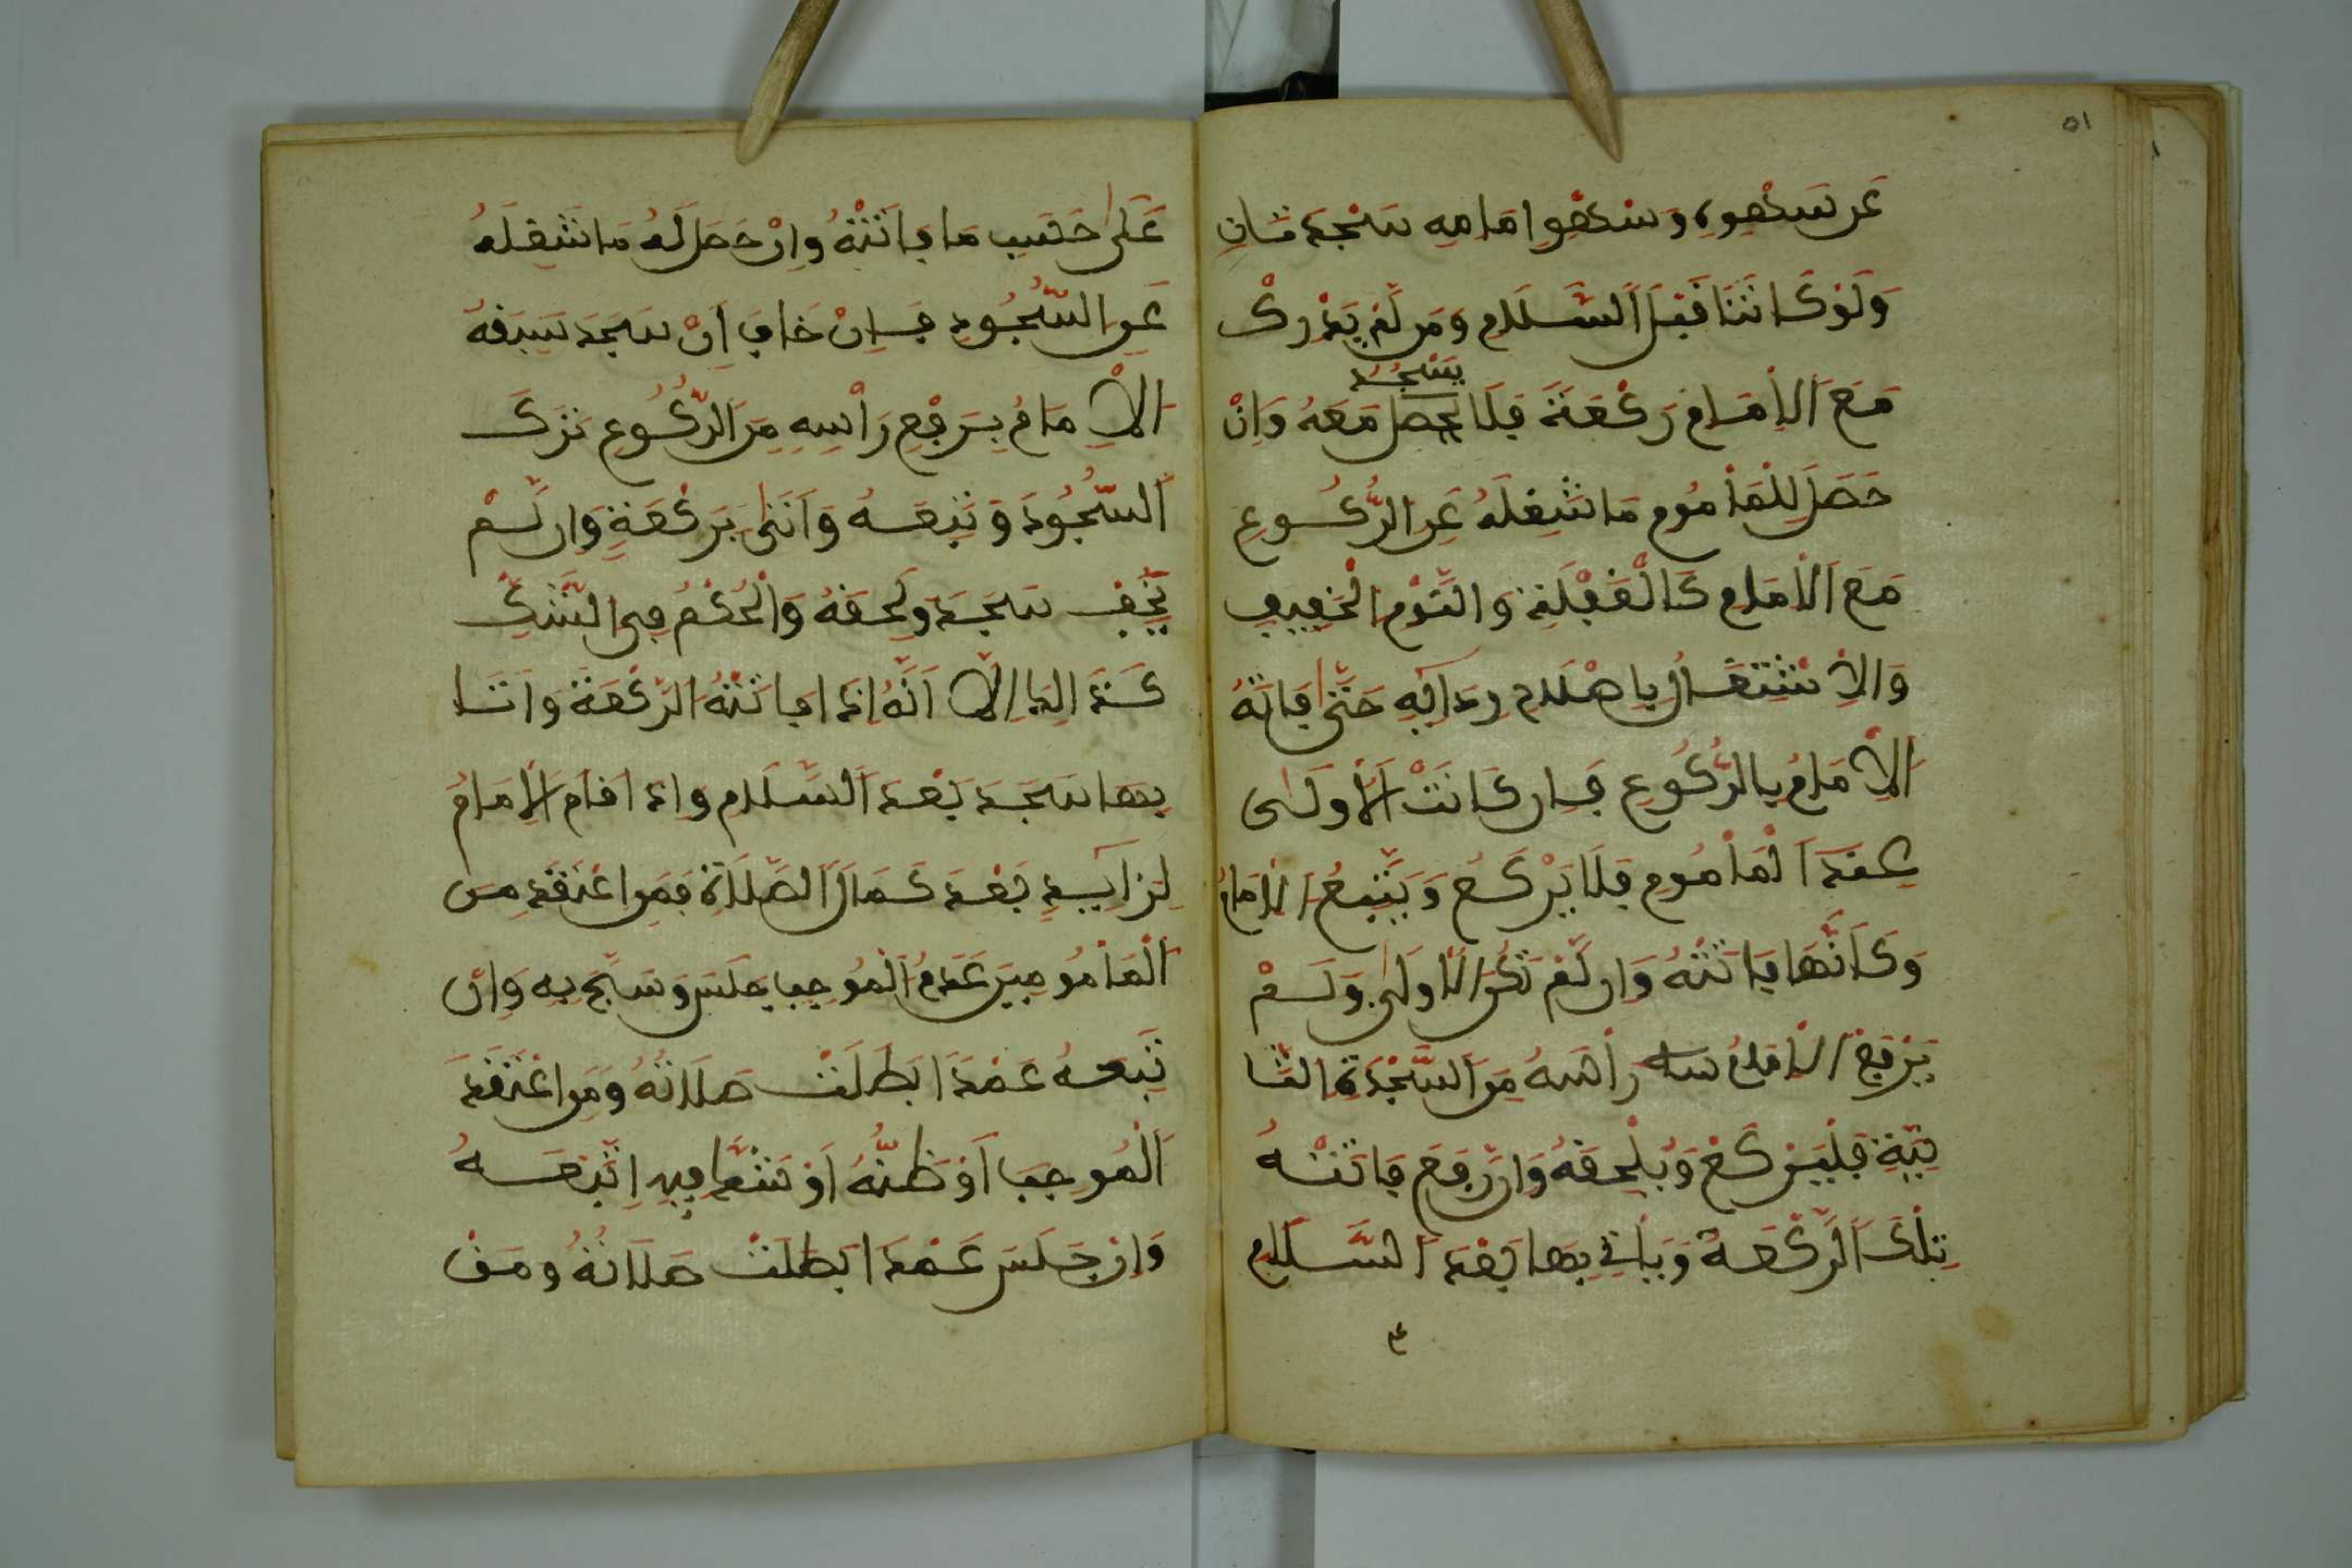 ٥١
عَن سَهْوِهِ وَسَهْوِ امَامِهِ سَجْدَتَانِ
وَلَوْ كَانَتَا قَبْلَ السَّلَامِ وَمَن لَّمْ يَدْرِكْ
مَعَ الْاِمَامِ رَكْعَةً فَلَا يَسْجُدُ مَعَهُ وَاِنْ
حَصَلَ لِلْمَأْمُومِ مَا شَغَلَهُ عَنِ الرُّكُوعِ
مَعَ الْاِمَامِ كَالْغَفْلَةِ وَالنَّوْمِ الْخَفِيفِ
وَالِاشْتِغَالِ بِاصْلَاحِ رِدَائِهِ حَتَّى فَاتَهُ
الْاِمَامُ بِالرُّكُوعِ فَاِن كَانَتْ الْأُولَى
عِنْدَ الْمَأْمُومِ فَلَا يَرْكَعُ وَيَتْبَعُ الْاِمَامَ
وَكَأَنَّهَا فَاتَتْهُ وَاِن لَّمْ تَكُنِ الْاُولَى وَلَمْ
يَرْفَعِ الْاِمَامُ رَأْسَهُ مِنَ السَّجْدَةِ الثَّا
نِيَةِ فَلْيَرْكَعْ وَيَلْحَقُهُ وَاِن رَّفَعَ فَاتَتْهُ
تِلْكَ الرَّكْعَةُ وَيَأْتِي بِهَا بَعْدَ السَّلَامِ
عَلَى حَسَبِ مَا فَاتَتْهُ وَاِنْ حَصَلَ لَهُ مَا شَغَلَهُ
عَنِ السُّجُودِ فَاِنْ خَافَ اَنْ سَجَدَ سَبَقَهُ
الْاِمَامُ بِرَفْعِ رَأْسِهِ مِنَ الرُّكُوعِ تَرَكَ
السُّجُودَ وَتَبِعَهُ وَاَتَى بِرَكْعَةٍ وَاِن لَّمْ
يَخَفْ سَجَدَ وَلَحِقَهُ وَالْحُكْمُ فِي الشَّكِّ
كَذَالِكَ اِلَّا اَنَّهُ اِذَا فَاتَتْهُ الرَّكْعَةُ وَاَتَا
بِهَا سَجَدَ بَعْدَ السَّلَامِ وَاِذَا قَامَ الْاِمَامُ
لِزَايِدٍ بَعْدَ كَمَالِ الصَّلَاةِ فَمَنِ اعْتَقَدَ مِنَ
الْمَأْمُومِينَ عَدَمَ الْمُوجِبِ جَلَسَ وَسَبَّحَ بِهِ وَاِنْ
تَبِعَهُ عَمْدًا بَطَلَتْ صَلَاتُهُ وَمَنِ اعْتَقَدَ
الْمُوجِبَ اَوْ ظَنَّهُ اَوْ شَكَّ فِيهِ اِتَّبَعَهُ
وَاِنْ جَلَسَ عَمْدًا بَطَلَتْ صَلَاتُهُ وَمَنْ